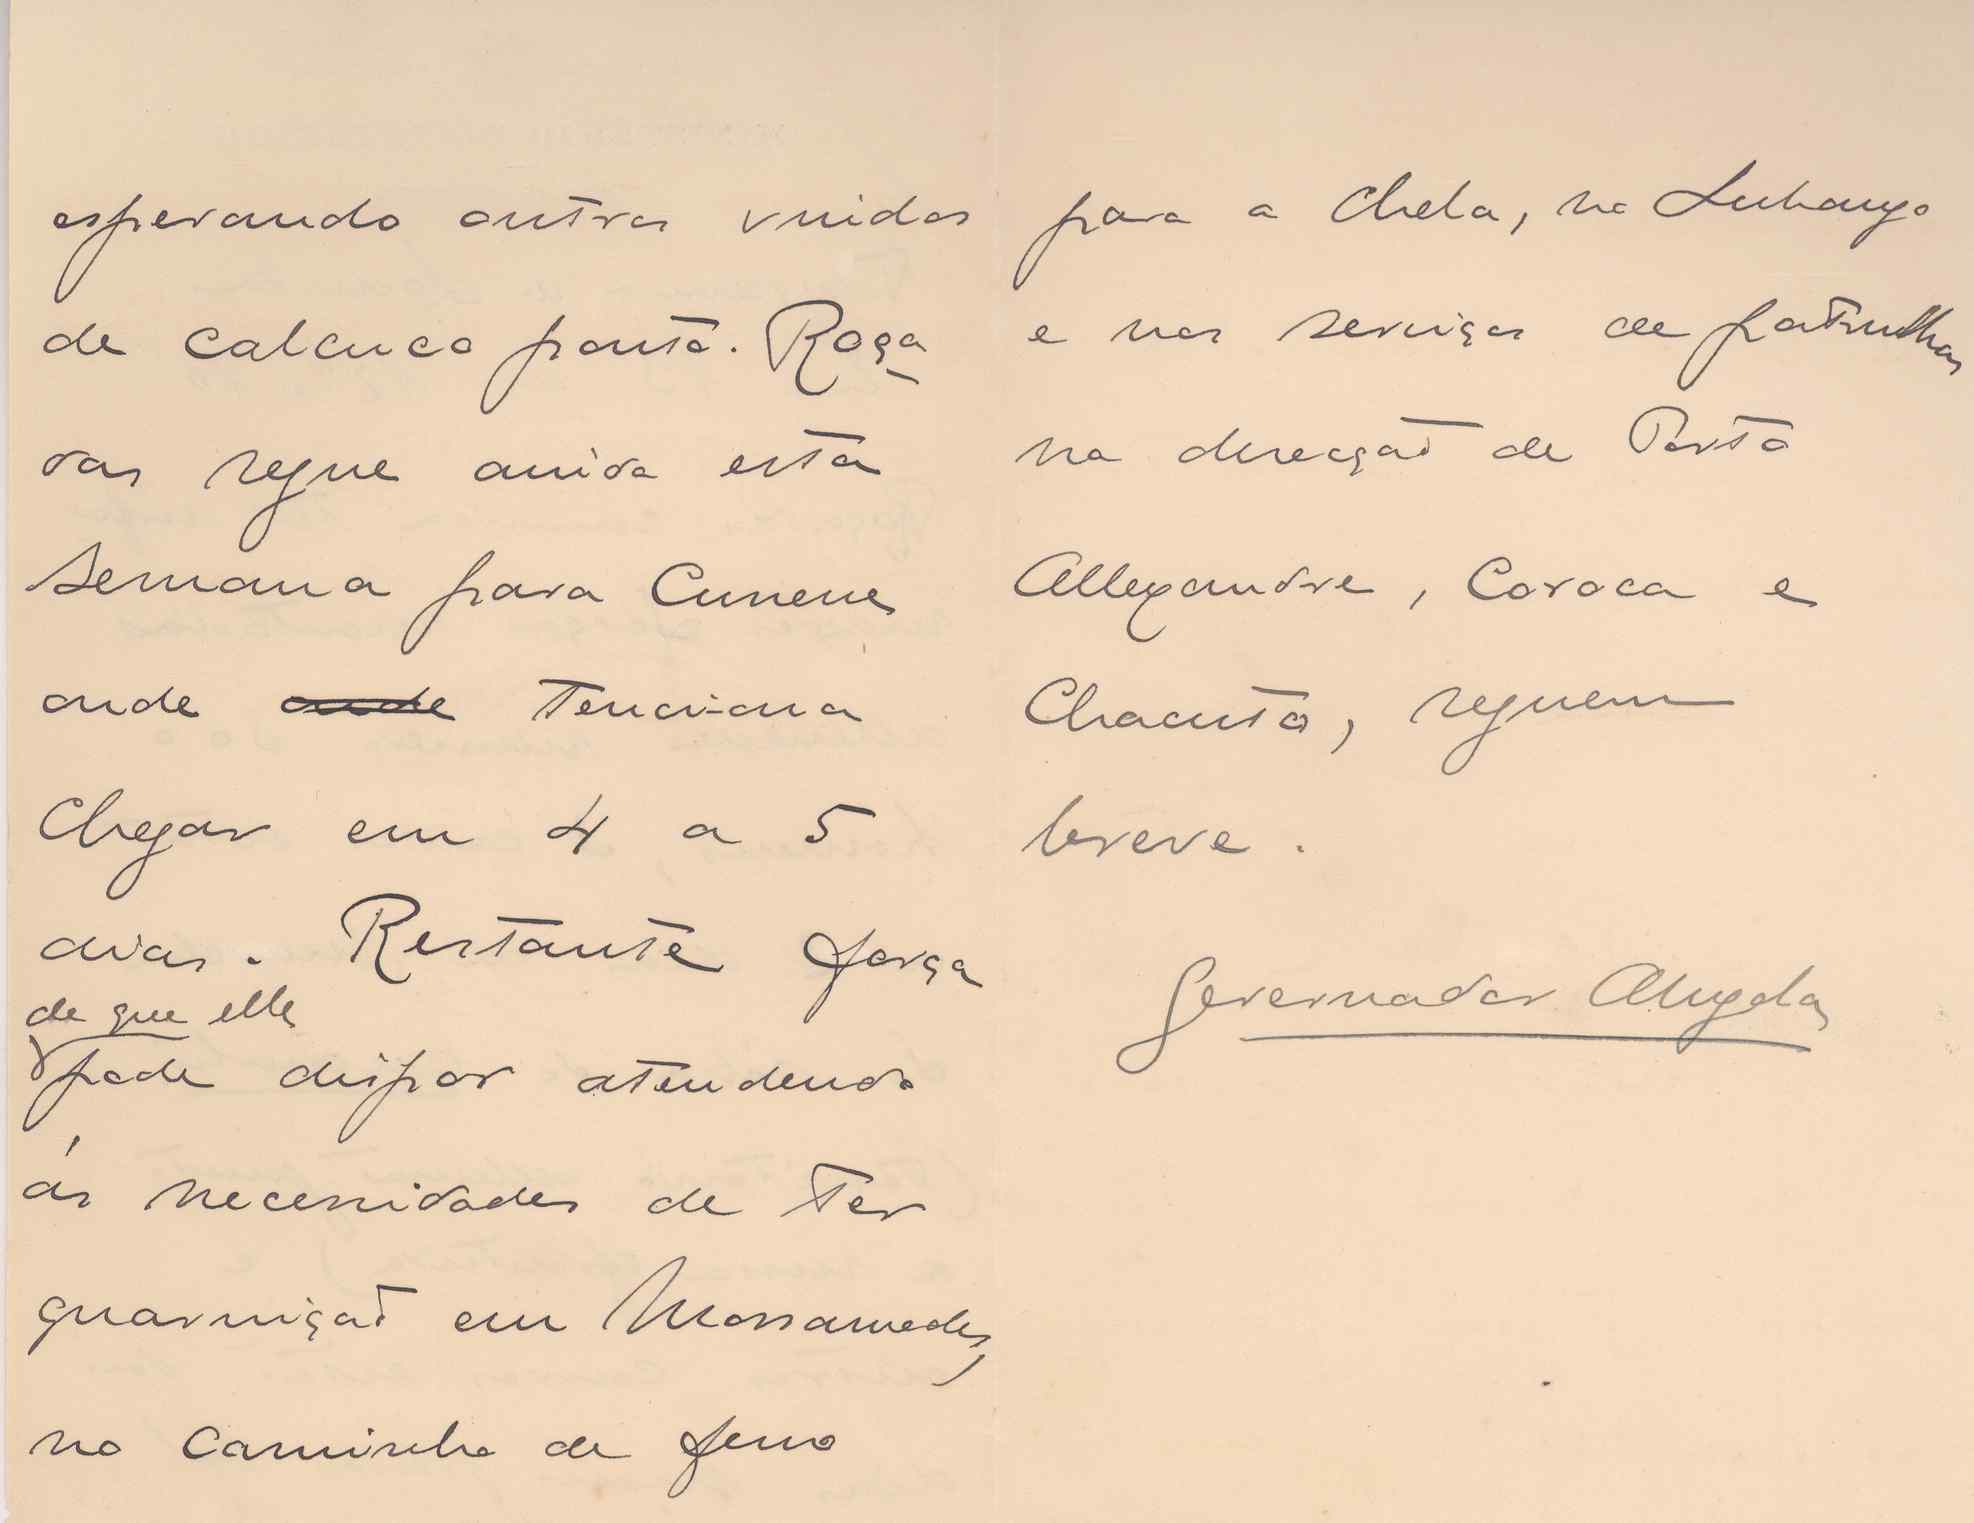 esperando outras vindas
de calcuco ponto. Roça
das segue ainda esta
semana para Cunene
onde onde tenciona
chegar em 4 a 5
dias. Restante força
de que elle
pode dispor atendendo
ás necessidades de ter
guarnição em Mossamedes,
no caminho de ferro
para a Chela, no Lubango
e nos serviços de patrulhas
na direcção de Porto
Allexandre, Coroca e
Chacuto, seguem
breve.
Governador Angola